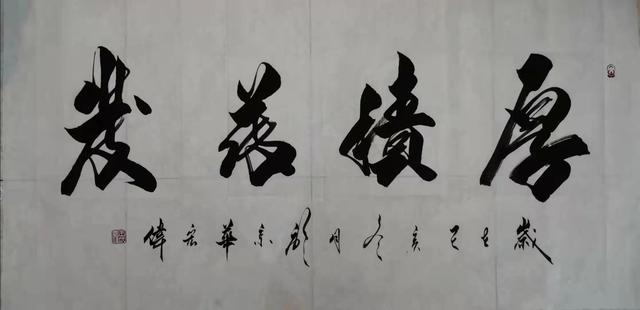 厚積薄發
歲在己亥冬月於京華宏偉